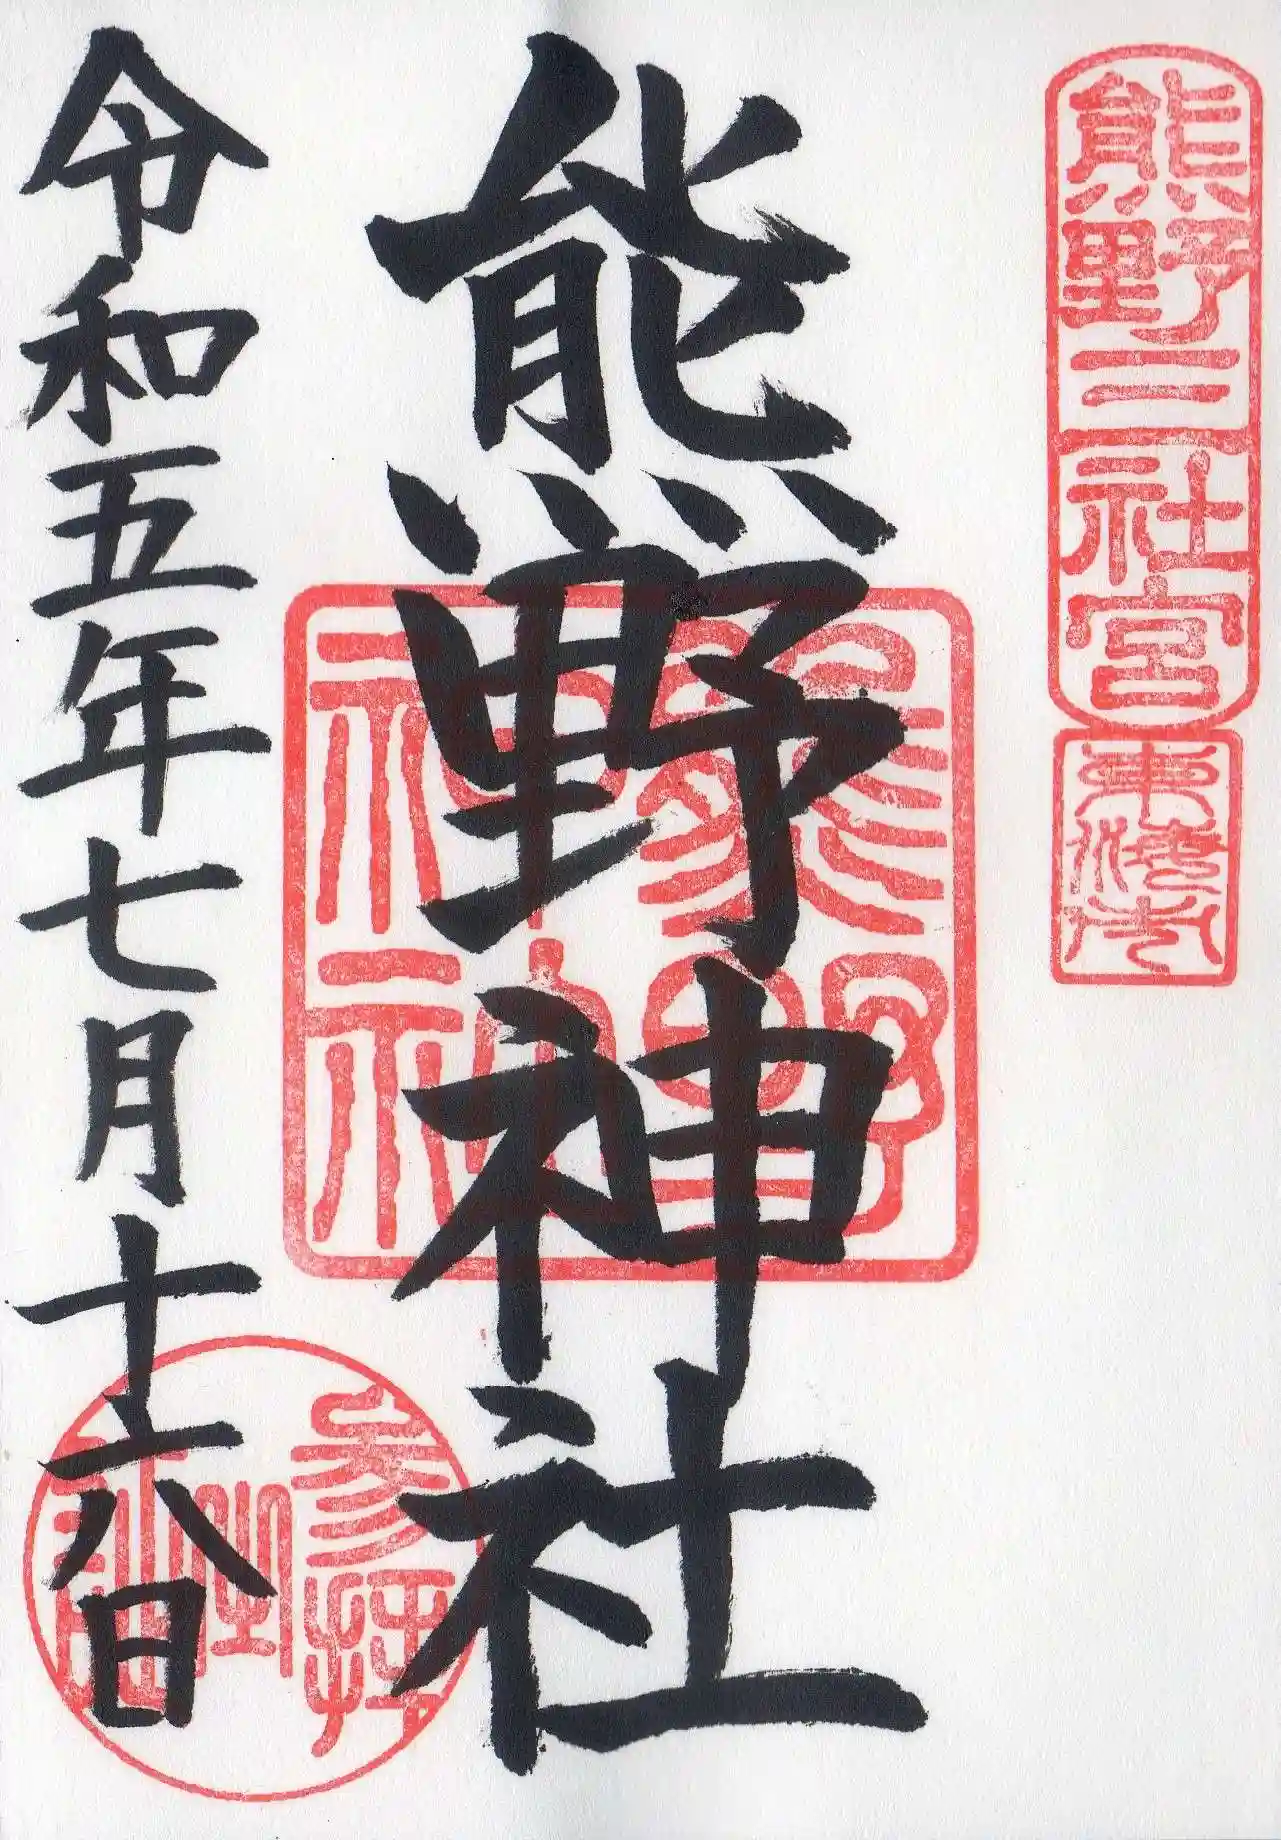 熊野三社宮
熊野神社
熊野
神社
参拝
令和五年七月十六日